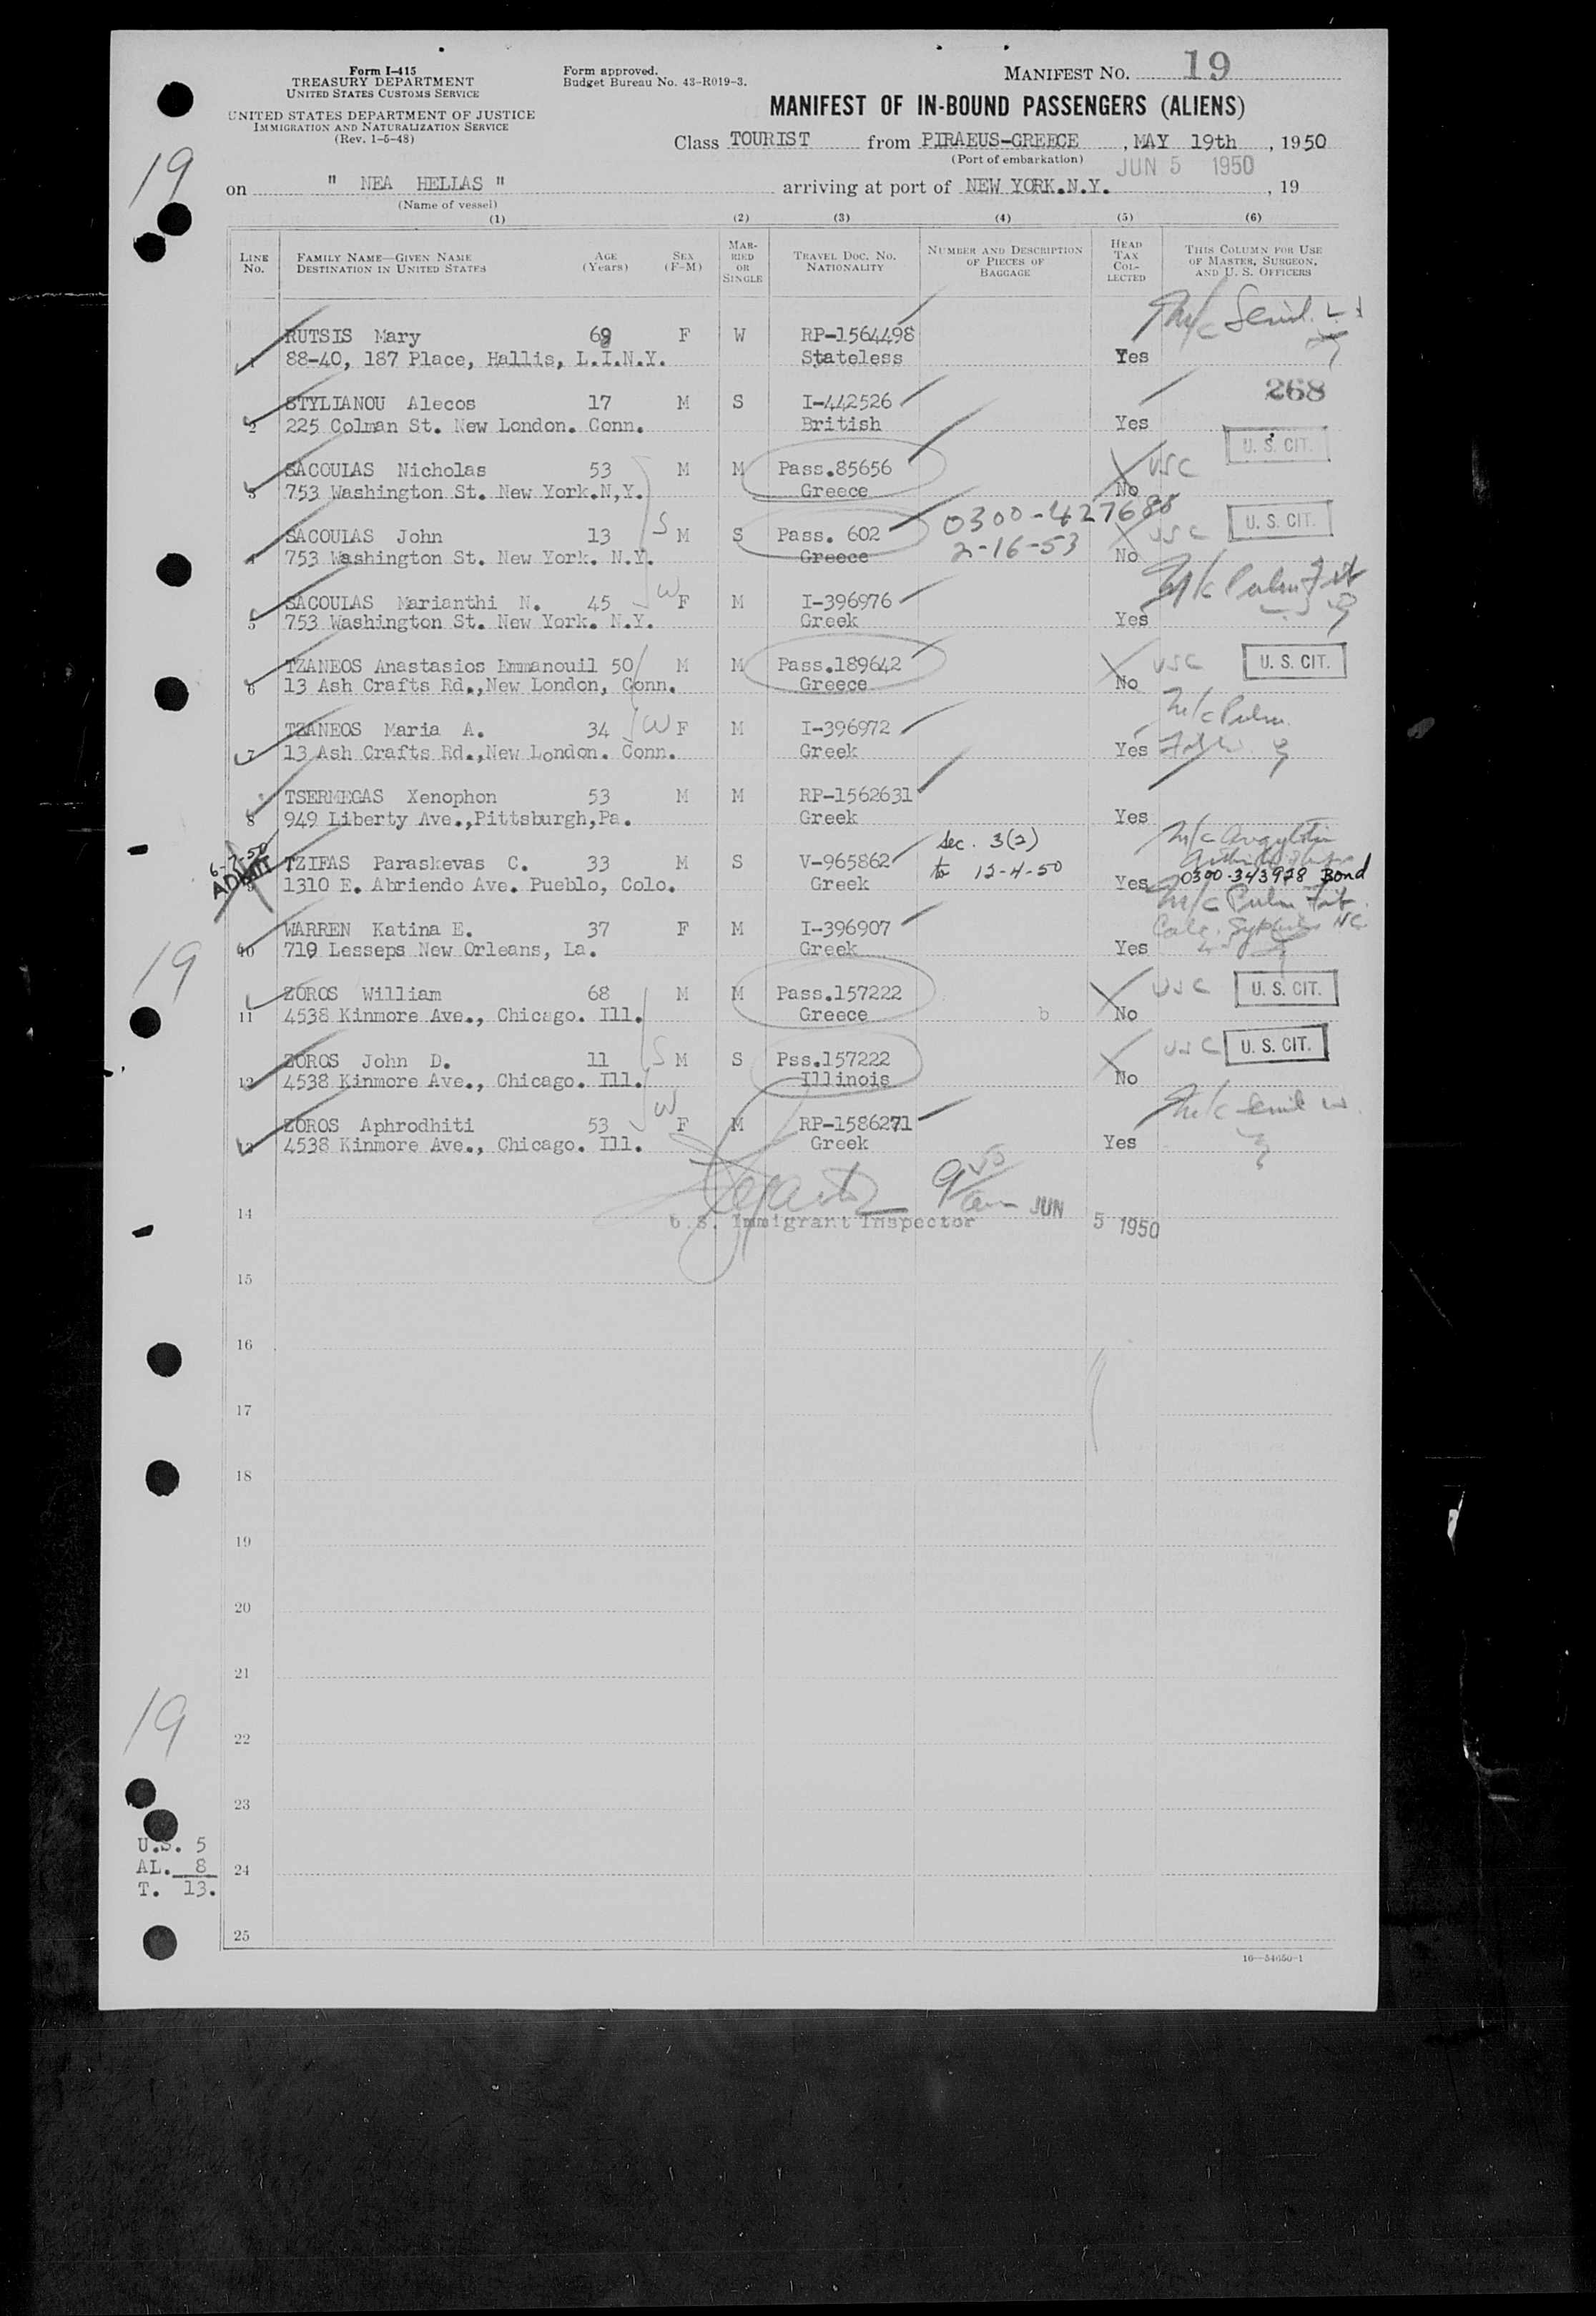 Form I-415
TREASURY DEPARTMENT
UNITED STATES CUSTOMS SERVICE
UNITED STATES DEPARTMENT OF JUSTICE
IMMIGRATION AND NATURALIZATION SERVICE
(Rev. 1-5-48)
Form approved.
Budget Bureau No. 43-R019-3.
MANIFEST NO. 19
MANIFEST OF IN-BOUND PASSENGERS (ALIENS)
Class TOURIST from PIRAEUS-GREECE , MAY 19th , 1950
(Port of embarkation) JUN 5 1950
19
on " NEA HELLAS " arriving at port of NEW YORK.N.Y. , 19
(Name of vessel)
(1) (2) (3) (4) (5) (6)
LINE No. FAMILY NAME—GIVEN NAME DESTINATION IN UNITED STATES AGE (Years) SEX (F-M) MARRIED OR SINGLE TRAVEL DOC. NO. NATIONALITY NUMBER AND DESCRIPTION OF PIECES OF BAGGAGE HEAD TAX COLLECTED THIS COLUMN FOR USE OF MASTER, SURGEON, AND U. S. OFFICERS
RUTSIS Mary F W RP-1564498 M/c Senil.
1 88-40, 187 Place, Hallis, L.I.N.Y. Stateless Yes
268
STYLIANOU Alecos 17 M S I-442526
2 225 Colman St. New London. Conn. British Yes
U. S. CIT.
SACOULAS Nicholas 53 M M Pass.85656 USC
3 753 Washington St. New York.N,Y. Greece No
SACOULAS John 13 S M S Pass. 602 0300-427688 USC U. S. CIT.
4 753 Washington St. New York. N.Y. Greece 2-16-53 No
SACOULAS Marianthi N. 45 W F M I-396976 M/c Pulm
5 753 Washington St. New York. N.Y. Greek Yes
TZANEOS Anastasios Emmanouil 50 M M Pass.189642 USC U. S. CIT.
6 13 Ash Crafts Rd.,New London, Conn. Greece No
TZANEOS Maria A. 34 W F M I-396972 M/c Pulm.
7 13 Ash Crafts Rd.,New London. Conn. Greek Yes
TSERMEGAS Xenophon 53 M M RP-1562631
8 949 Liberty Ave.,Pittsburgh,Pa. Greek Yes
6-7-50 ADMIT
TZIFAS Paraskevas C. 33 M S V-965862 Sec. 3(2) M/c
9 1310 E. Abriendo Ave. Pueblo, Colo. Greek to 12-4-50 Yes 0300-343978 Bond
WARREN Katina E. 37 F M I-396907 M/c Pulm
10 719 Lesseps New Orleans, La. Greek Yes
19
ZOROS William 68 M M Pass.157222 USC U. S. CIT.
11 4538 Kinmore Ave., Chicago. Ill. Greece b No
ZOROS John D. 11 S M S Pss.157222 USC U. S. CIT.
12 4538 Kinmore Ave., Chicago. Ill. Illinois No
ZOROS Aphrodhiti 53 W F M RP-1586271 M/c Senil
13 4538 Kinmore Ave., Chicago. Ill. Greek Yes
14 U.S. Immigrant Inspector JUN 5 1950
15
16
17
18
19
20
21
19
22
23
U.S. 5
AL. 8
24
T. 13.
25
16—54650-1